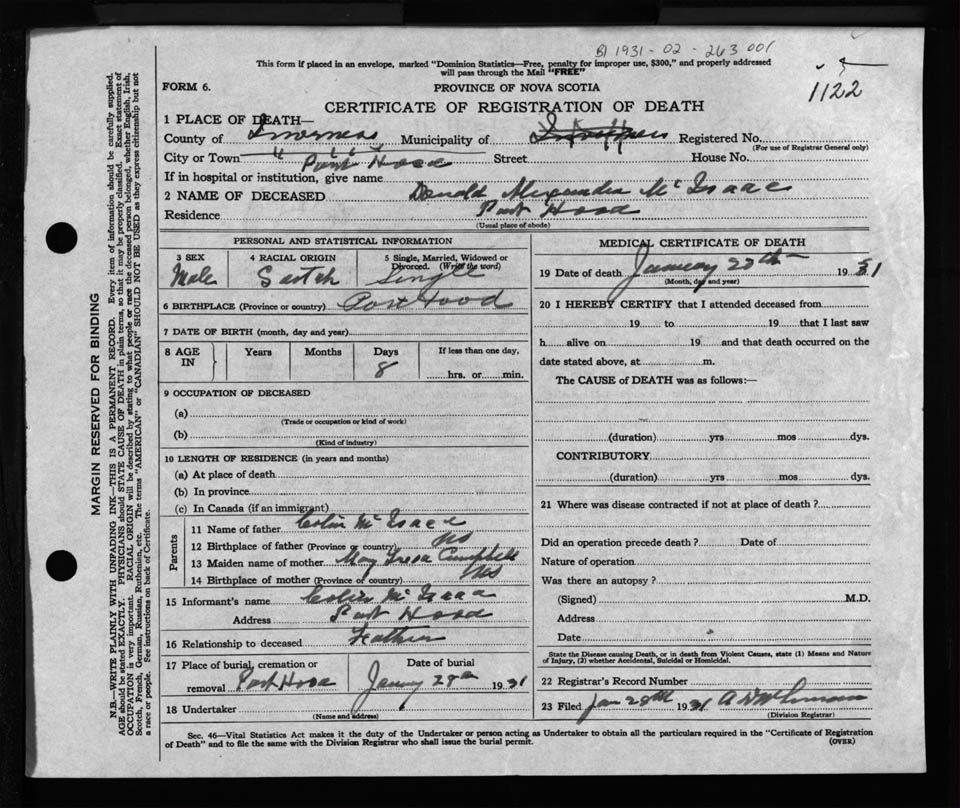 B 1931-02-263 001
1122
This form if placed in an envelope, marked "Dominion Statistics—Free, penalty for improper use, $300," and properly addressed
will pass through the Mail "FREE"
FORM 6.
PROVINCE OF NOVA SCOTIA
CERTIFICATE OF REGISTRATION OF DEATH
1 PLACE OF DEATH—
County of Inverness Municipality of Registered No.
(For use of Registrar General only)
City or Town Port Hood Street House No.
If in hospital or institution, give name
2 NAME OF DECEASED Donald Alexander McIsaac
Residence Port Hood
(Usual place of abode)
PERSONAL AND STATISTICAL INFORMATION
3 SEX 4 RACIAL ORIGIN 5 Single, Married, Widowed or
Divorced. (Write the word)
Male Scotch Single
6 BIRTHPLACE (Province or country) Port Hood
7 DATE OF BIRTH (month, day and year)
8 AGE IN Years Months Days If less than one day,
8 hrs. or min.
9 OCCUPATION OF DECEASED
(a)
(Trade or occupation or kind of work)
(b)
(Kind of industry)
10 LENGTH OF RESIDENCE (in years and months)
(a) At place of death
(b) In province
(c) In Canada (if an immigrant)
Parents
11 Name of father Colin McIsaac
12 Birthplace of father (Province or country) NS
13 Maiden name of mother Mary Campbell
14 Birthplace of mother (Province or country) NS
15 Informant's name Colin McIsaac
Address Port Hood
16 Relationship to deceased Father
17 Place of burial, cremation or Date of burial
removal Port Hood January 29th 1931
18 Undertaker
(Name and address)
MEDICAL CERTIFICATE OF DEATH
19 Date of death January 1931
(Month, day and year)
20 I HEREBY CERTIFY that I attended deceased from
19 to 19 that I last saw
h alive on 19 and that death occurred on the
date stated above, at m.
The CAUSE of DEATH was as follows:—
(duration) yrs mos dys.
CONTRIBUTORY
(duration) yrs mos dys.
21 Where was disease contracted if not at place of death?
Did an operation precede death? Date of
Nature of operation
Was there an autopsy?
(Signed) M.D.
Address
Date
State the Disease causing Death, or in death from Violent Causes, state (1) Means and Nature
of Injury, (2) whether Accidental, Suicidal or Homicidal.
22 Registrar's Record Number
23 Filed Jan 1931
(Division Registrar)
Sec. 46—Vital Statistics Act makes it the duty of the Undertaker or person acting as Undertaker to obtain all the particulars required in the "Certificate of Registration
of Death" and to file the same with the Division Registrar who shall issue the burial permit.
(OVER)
MARGIN RESERVED FOR BINDING
N.B.—WRITE PLAINLY WITH UNFADING INK—THIS IS A PERMANENT RECORD. Every item of information should be carefully supplied.
AGE should be stated EXACTLY. PHYSICIANS should STATE CAUSE OF DEATH in plain terms, so that it may be properly classified. Exact statement of
OCCUPATION is very important. RACIAL ORIGIN will be described by stating to what people or race the deceased person belonged, whether English, Irish,
Scotch, French, German, Russian, Ruthenian, etc. The terms "AMERICAN" or "CANADIAN" SHOULD NOT BE USED as they express citizenship but not
a race or people. See instructions on back of Certificate.